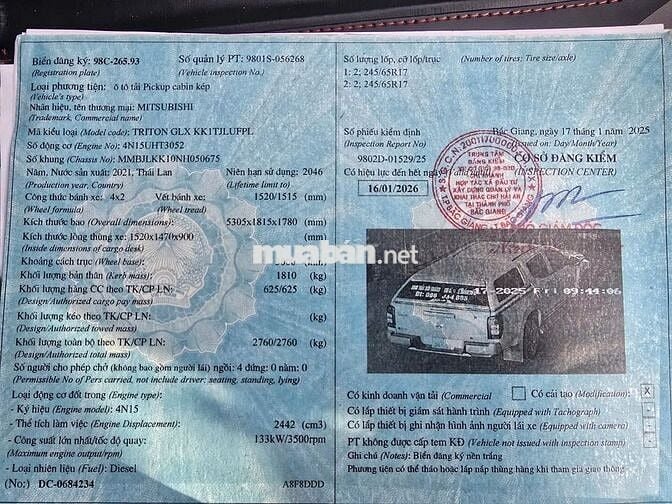 Biển đăng ký: 98C-265.93 Số quản lý PT: 9801S-056268
(Registration plate) (Vehicle inspection No.)
Loại phương tiện: ô tô tải Pickup cabin kép
(Vehicle's type)
Nhãn hiệu, tên thương mại: MITSUBISHI
(Trademark, Commercial name)
Mã kiểu loại (Model code): TRITON GLX KK1TJLUFPL
Số động cơ (Engine No): 4N15UHT3052
Số khung (Chassis No): MMBJLKK10NH050675
Năm, Nước sản xuất: 2021, Thái Lan Niên hạn SD: 2046
(Production year, Country) (Lifetime limit to)
Công thức bánh xe: 4x2 Vết bánh xe: 1520/1515 (mm)
(Wheel formula) (Wheel tread)
Kích thước bao (Overall dimensions): 5305x1815x1780 (mm)
Kích thước lòng thùng xe: 1520x1470x900 (mm)
(Inside dimensions of cargo desk)
Khoảng cách trục (Wheel base): (mm)
Khối lượng bản thân (Kerb mass): 1810 (kg)
Khối lượng hàng CC theo TK/CP LN: 625/625 (kg)
(Design/Authorized cargo pay mass)
Khối lượng kéo theo TK/CP LN: (kg)
(Design/Authorized towed mass)
Khối lượng toàn bộ theo TK/CP LN: 2760/2760 (kg)
(Design/Authorized total mass)
Số người cho phép chở (không bao gồm người lái) ngồi: 4 đứng: 0 nằm: 0
(Permissible No of Pers carried, not include driver: seating, standing, lying)
Loại động cơ đốt trong (Engine type):
- Ký hiệu (Engine model): 4N15
- Thể tích làm việc (Engine Displacement): 2442 (cm3)
- Công suất lớn nhất/tốc độ quay: 133kW/3500rpm
(Maximum engine output/rpm)
- Loại nhiên liệu (Fuel): Diesel
(No.) DC-0684234 A8F8DDD
Số lượng lốp, cỡ lốp/trục (Number of tires: Tire size/axle)
1: 2; 245/65R17
2: 2; 245/65R17
Số phiếu kiểm định Bắc Giang, ngày 17 tháng 1 năm 2025
(Inspection Report No) (Issued on: Day/Month/Year)
9802D-01529/25 CƠ SỞ ĐĂNG KIỂM
Có hiệu lực đến hết ngày (INSPECTION CENTER)
16/01/2026
TRUNG TÂM
ĐĂNG KIỂM
CHI NHÁNH
HỢP TÁC XÃ ĐẦU TƯ
XÂY DỰNG QUẢN LÝ VÀ
KHAI THÁC CHỢ HẢI AN
TẠI THÀNH PHỐ
BẮC GIANG
GIÁM ĐỐC
muaban.net
17-2025 Fri 09:44:06
Có kinh doanh vận tải (Commercial Có cải tạo (Modification): X
Có lắp thiết bị giám sát hành trình (Equipped with Tachograph)
Có lắp thiết bị ghi nhận hình ảnh người lái xe (Equipped with camera)
PT không được cấp tem KĐ (Vehicle not issued with inspection stamp)
Ghi chú (Notes): Biển đăng ký nền trắng
Phương tiện có thể tháo hoặc lắp nắp thùng hàng khi tham gia giao thông